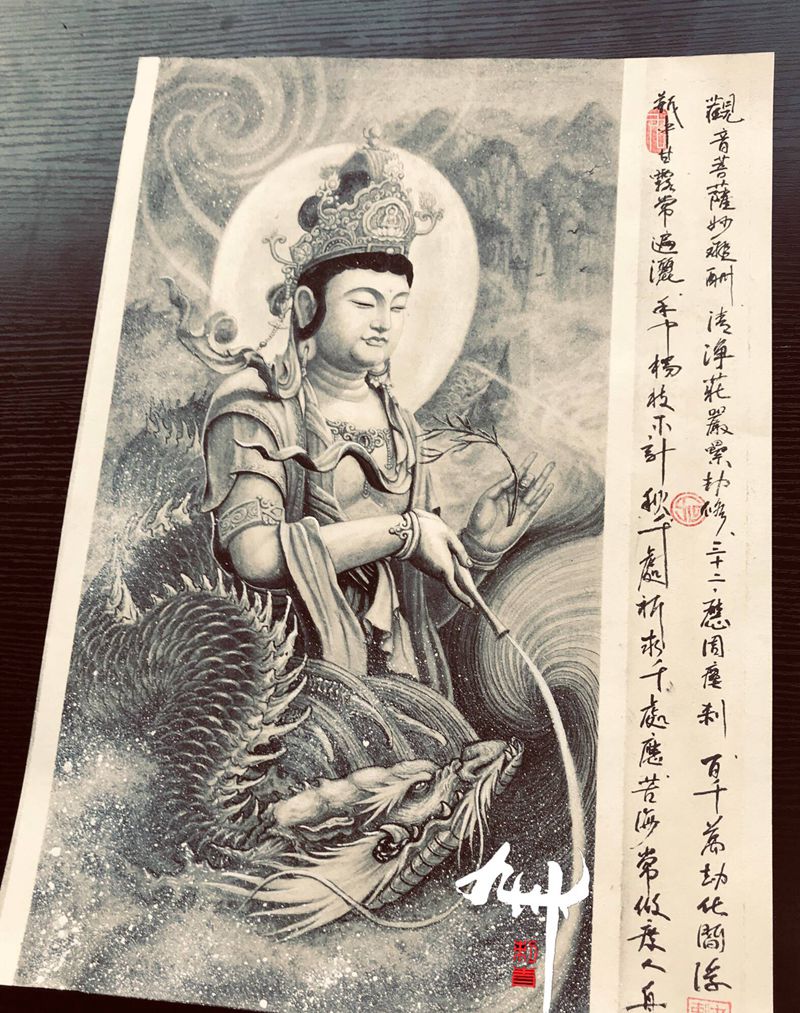 觀音菩薩妙難酬 清淨莊嚴累劫修 三十二應周塵刹 百千萬劫化閻浮
瓶中甘露常遍灑 手中楊枝不計秋 千處祈求千處應 苦海常做度人舟
九州